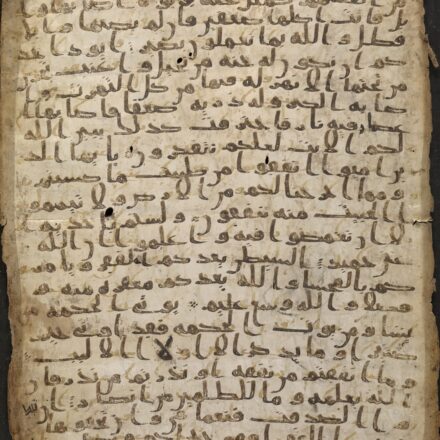 بل فاتت اكلها ضعفين فان لم يصبها وابل
فطل والله بما تعملون بصير ايود احد
كم ان تكون له جنة من نخيل واعنب تجر
ي من تحتها الانهر له فيها من كل الثمرت وا
صابه الكبر وله ذرية ضعفا فاصابها ا
عصار فيه نار فاحترقت كذلك يبين الله
لكم الايت لعلكم تتفكرون يايها الذ
ين امنوا انفقوا من طيبت ما كسبتم
ومما اخرجنا لكم من الارض ولا تيمموا
الخبيث منه تنفقون ولستم باخذيه ا
لا ان تغمضوا فيه واعلموا ان الله
غني حميد الشيطن يعدكم الفقر ويامر
كم بالفحشا والله يعدكم مغفرة منه و
فضلا والله وسع عليم يوتي الحكمة من
يشا ومن يوت الحكمة فقد اوتي خير
كثيرا وما يذكر الا اولوا الالبب
وما انفقتم من نفقة او نذرتم من نذر فان
الله يعلمه وما للظلمين من انصار ان
تبدوا الصدقت فنعما هي وان تخفوها